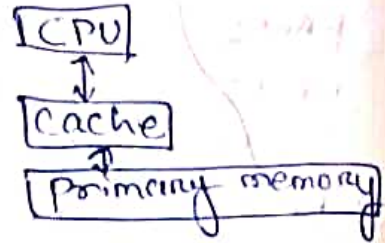 CPU
Cache
Primary memory